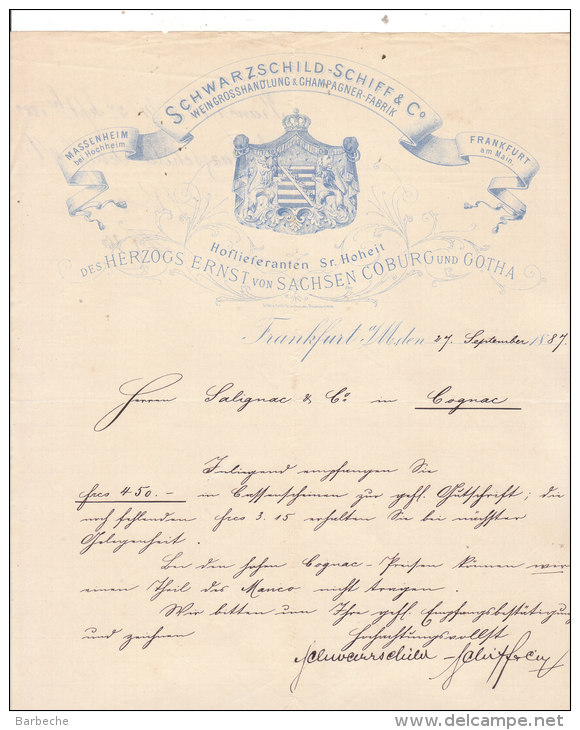 SCHWARZSCHILD-SCHIFF & Co
WEINGROSSHANDLUNG & CHAMPAGNER-FABRIK
MASSENHEIM
bei Hochheim
FRANKFURT
am Main.
Hoflieferanten Sr. Hoheit
DES HERZOGS ERNST VON SACHSEN COBURG UND GOTHA
Frankfurt a/M, den 27. September 1887
Herren Salignac & Co in Cognac
Inliegend empfangen Sie
frcs 450.- in Cassenscheinen zur gefl. Gutschrift; die
noch fehlenden frcs 3.15 erhalten Sie bei nächster
Gelegenheit.
Bei den hohen Cognac-Preisen können wir
einen Theil des Manco nicht tragen.
Wir bitten um Ihre gefl. Empfangsbestätigung
und zeichnen Hochachtungsvollst
Schwarzschild-Schiff & Co
Barbeche
delcampe.net